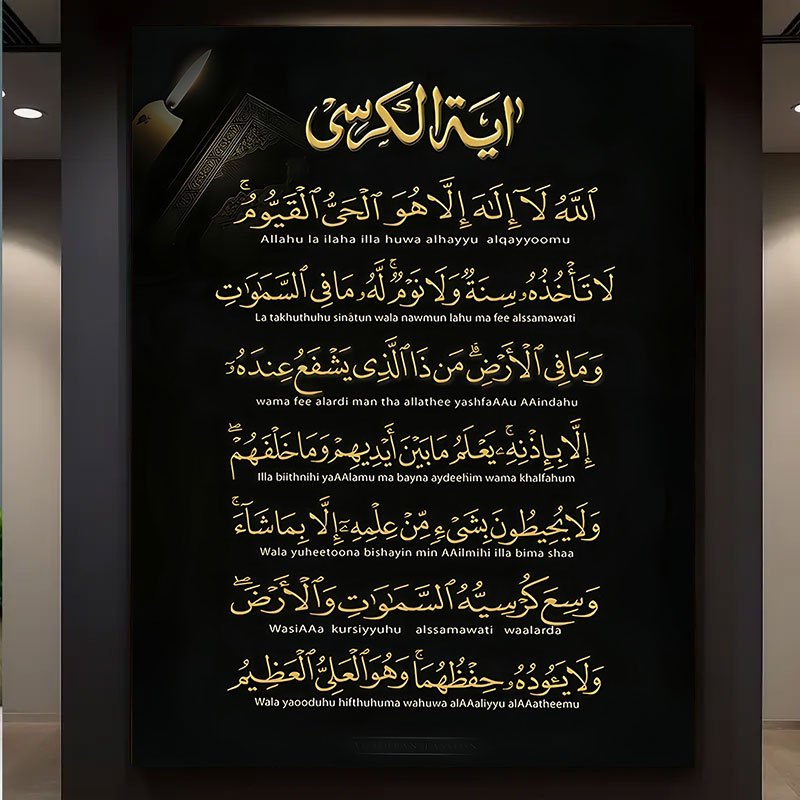 اية الكرسى
ٱللَّهُ لَآ إِلَٰهَ إِلَّا هُوَ ٱلْحَىُّ ٱلْقَيُّومُ ۚ
Allahu la ilaha illa huwa alhayyu alqayyoomu
لَا تَأْخُذُهُۥ سِنَةٌ وَلَا نَوْمٌ ۚ لَّهُۥ مَا فِى ٱلسَّمَٰوَٰتِ
La takhuthuhu sinātun wala nawmun lahu ma fee alssamawati
وَمَا فِى ٱلْأَرْضِ ۗ مَن ذَا ٱلَّذِى يَشْفَعُ عِندَهُۥٓ
wama fee alardi man tha allathee yashfaAAu AAindahu
إِلَّا بِإِذْنِهِۦ ۚ يَعْلَمُ مَا بَيْنَ أَيْدِيهِمْ وَمَا خَلْفَهُمْ ۖ
Illa biithnihi yaAAlamu ma bayna aydeehim wama khalfahum
وَلَا يُحِيطُونَ بِشَىْءٍ مِّنْ عِلْمِهِۦٓ إِلَّا بِمَا شَآءَ ۚ
Wala yuheetoona bishayin min AAilmihi illa bima shaa
وَسِعَ كُرْسِيُّهُ ٱلسَّمَٰوَٰتِ وَٱلْأَرْضَ ۖ
WasiAAa kursiyyuhu alssamawati waalarda
وَلَا يَـُٔودُهُۥ حِفْظُهُمَا ۚ وَهُوَ ٱلْعَلِىُّ ٱلْعَظِيمُ
Wala yaooduhu hifthuhuma wahuwa alAAaliyyu alAAatheemu